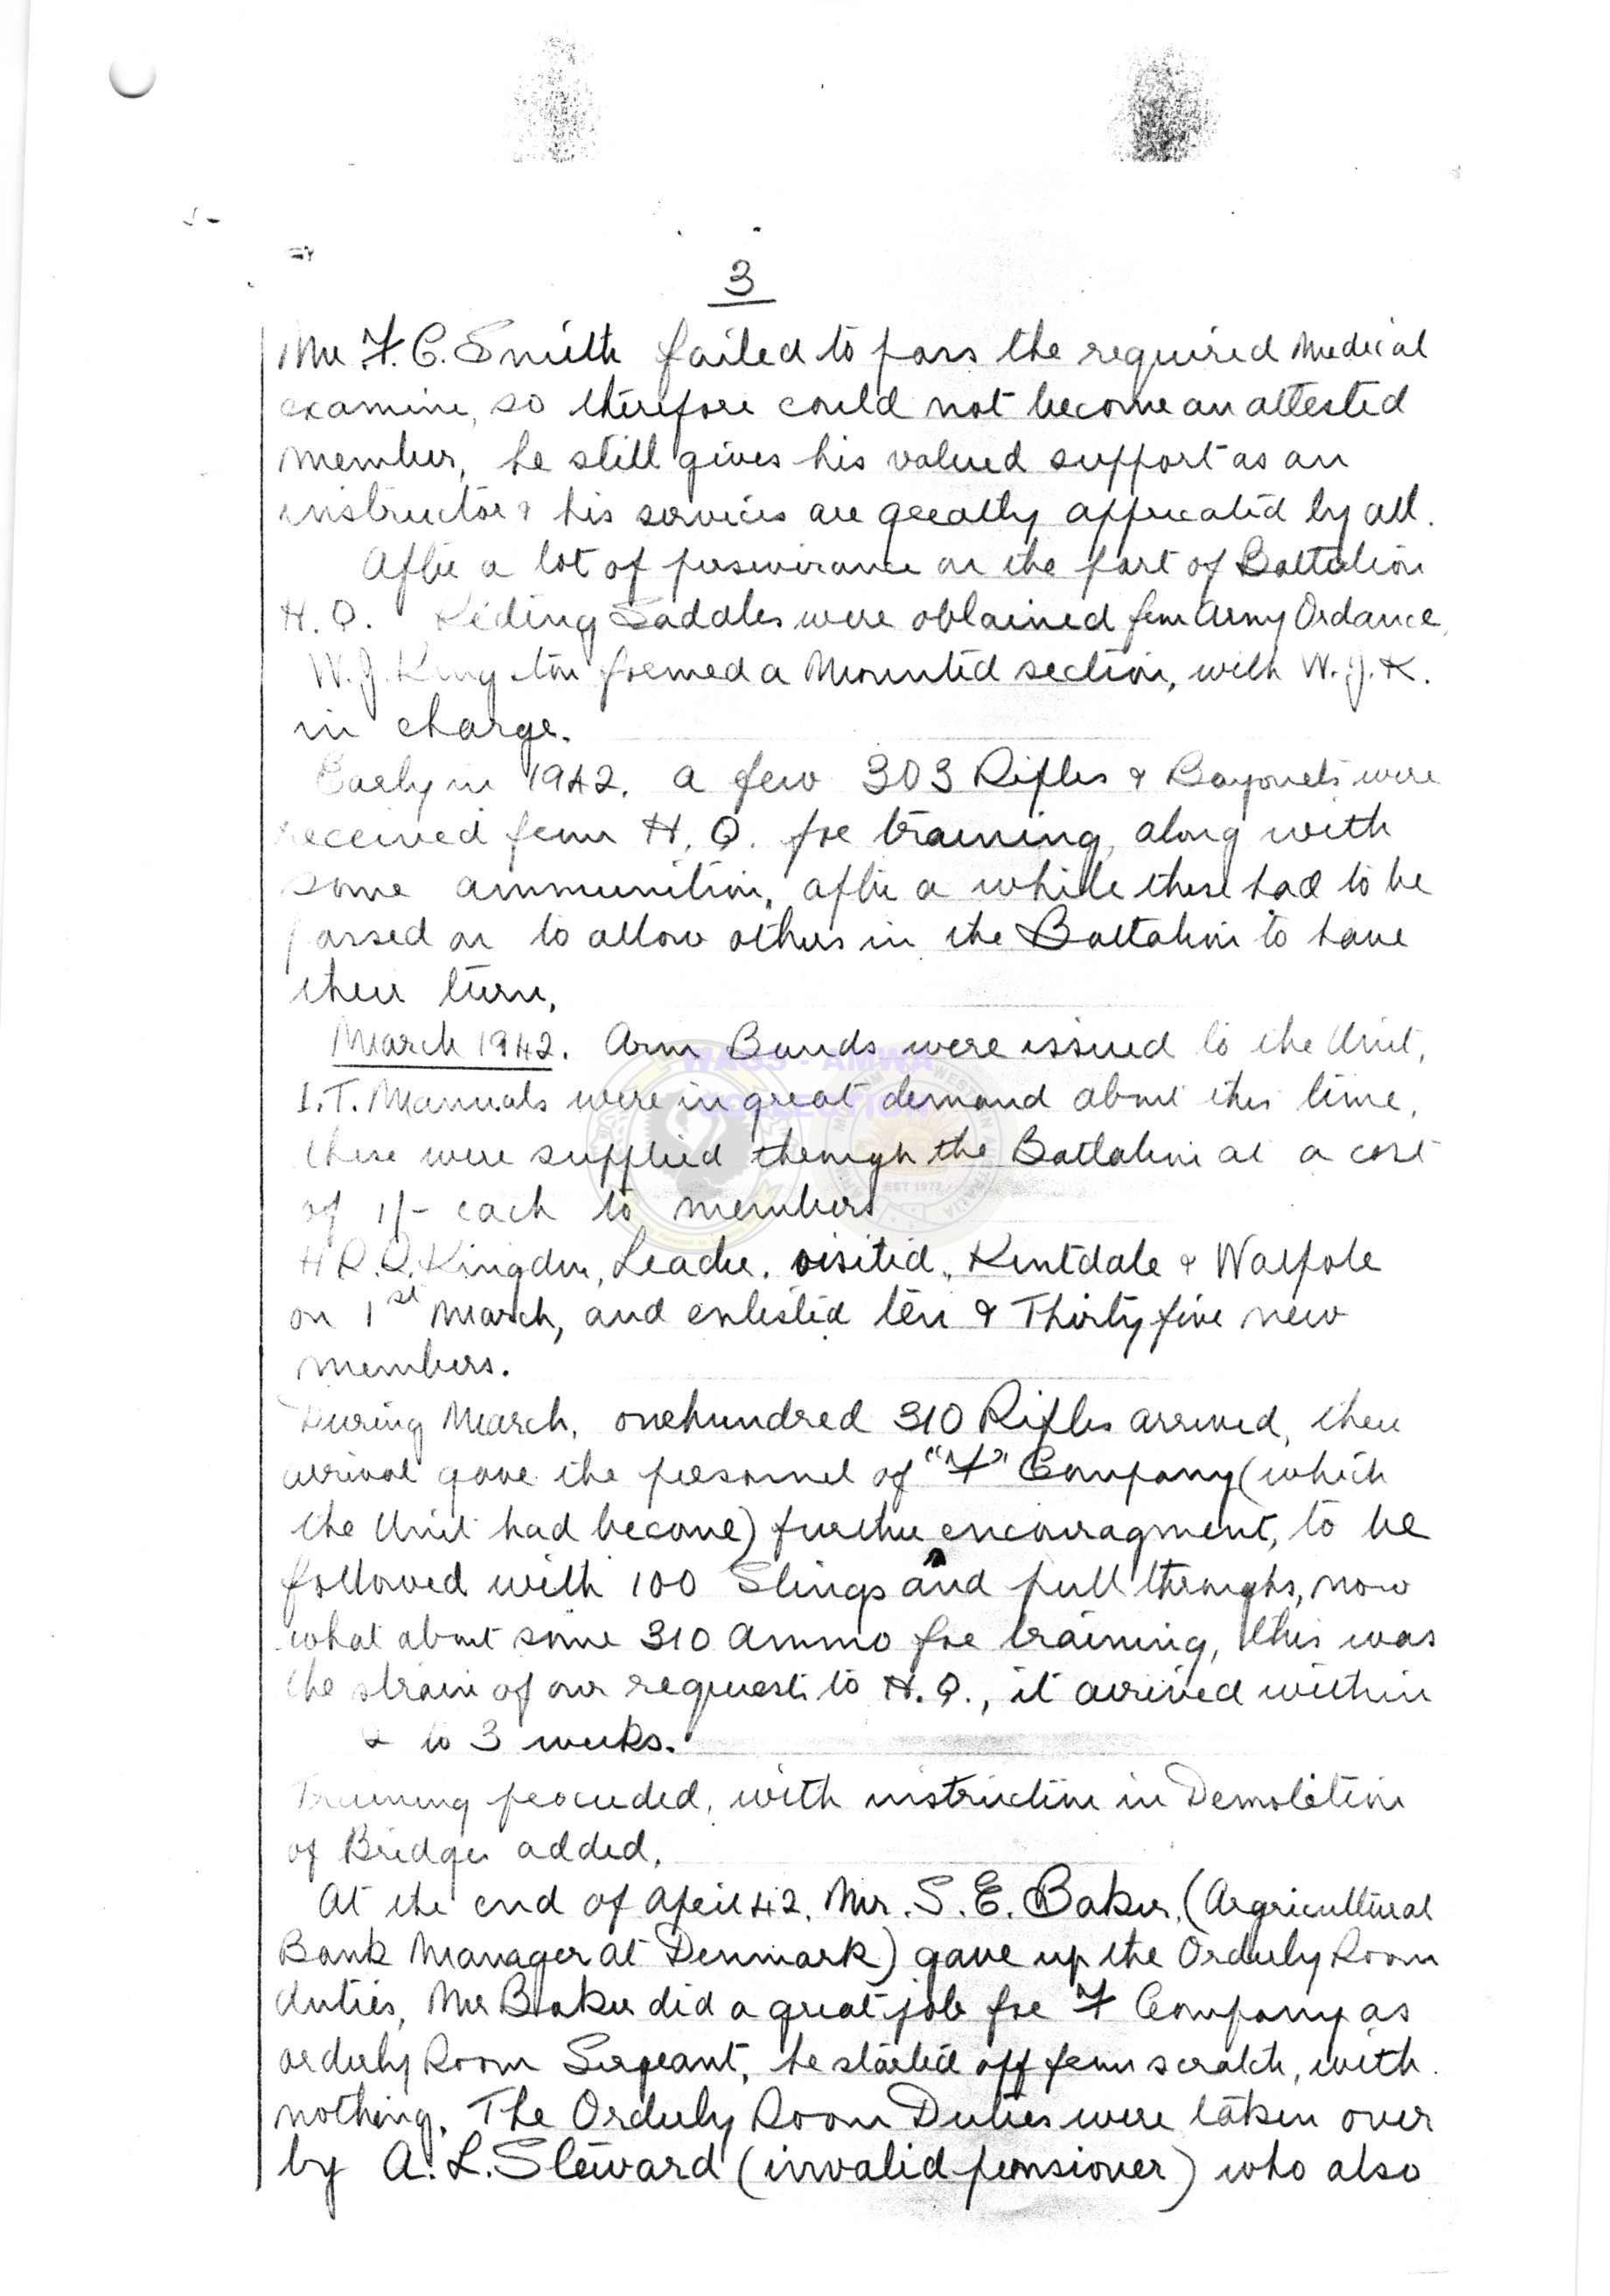 3
Mr F. C. Smith failed to pass the required Medical
examine, so therefore could not become an attested
member, he still gives his valued support as an
instructor & his services are greatly appreciated by all.
After a lot of perseverance on the part of Battalion
H. Q. Riding Saddles were obtained from Army Ordance,
W. J. Kingston formed a Mounted section, with W. J. K.
in charge.
Early in 1942. a few 303 Rifles & Bayonets were
received from H. Q. for training, along with
some ammunition, after a while these had to be
passed on to allow others in the Battalion to have
their turn,
March 1942. Arm Bands were issued to the Unit,
I.T. Manuals were in great demand about this time,
these were supplied through the Battalion at a cost
of 1/- each to members
H R. Q. Kingdon, Leader, visited, Kentdale & Walpole
on 1st March, and enlisted ten & Thirty five new
members.
During March, onehundred 310 Rifles arrived, their
arrival gave the personnel of "F" Company (which
the Unit had become) further encouragment, to be
followed with 100 Slings and pull throughs, now
what about some 310 Ammo for training, this was
the strain of our requests to H. Q., it arrived within
2 to 3 weeks.
Training proceeded, with instruction in Demolition
of Bridges added,
At the end of April 42, Mr. S. E. Baker, (Argricultural
Bank Manager at Denmark) gave up the Orderly Room
duties, Mr Baker did a great job for F Company as
orderly Room Sergeant, he started off from scratch, with
nothing. The Orderly Room Duties were taken over
by A. L. Steward (invalid pensioner) who also
WAGS - AMWA
COLLECTION
EST 1977